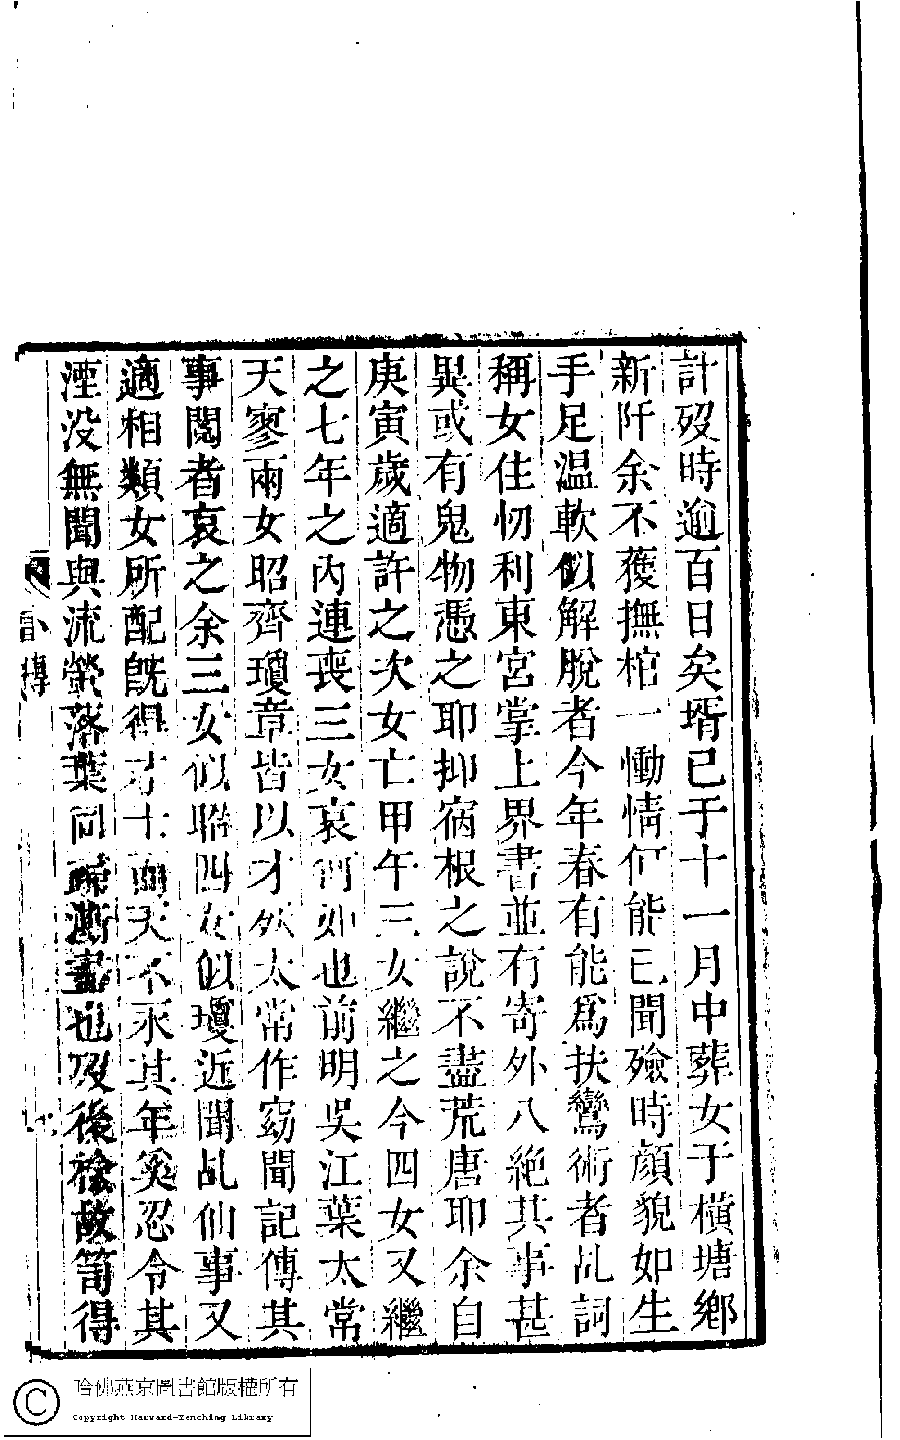 計歿時逾百日矣壻已于十一月中葬女于橫塘鄉
新阡余不獲撫棺一慟情何能已聞殮時顏貌如生
手足温軟似解脫者今年春有能爲扶鸞術者乩詞
稱女住忉利東宮掌上界書並有寄外八絶其事甚
異或有鬼物憑之耶抑宿根之說不盡荒唐耶余自
庚寅歲適許之次女亡甲午三女繼之今四女又繼
之七年之內連喪三女哀何如也前明吳江葉太常
天寥兩女昭齊瓊章皆以才殀太常作窈聞記傳其
事閱者哀之余三女似昭四女似瓊近聞乩仙事又
適相類女所配旣得才士而天不永其年奚忍令其
湮没無聞與流螢落葉同歸澌盡也歿後檢故笥得
傳
哈佛燕京圖書館版權所有
Copyright Harvard-Yenching Library